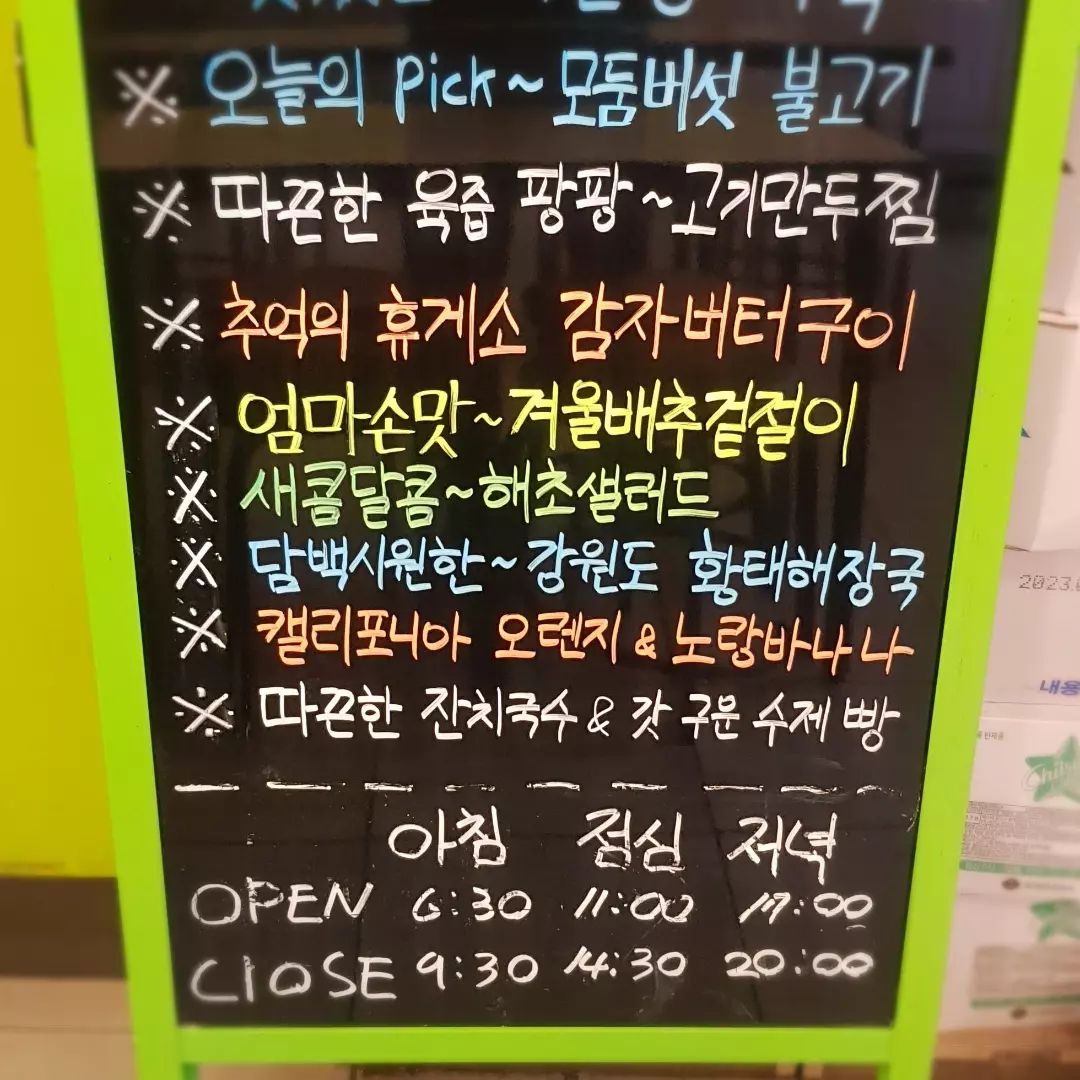 ※ 오늘의 Pick ~ 모둠버섯 불고기
※ 따끈한 육즙 팡팡 ~ 고기만두찜
※ 추억의 휴게소 감자버터구이
※ 엄마손맛 ~ 겨울배추겉절이
※ 새콤달콤 ~ 해초샐러드
※ 담백시원한 ~ 강원도 황태해장국
※ 캘리포니아 오렌지 & 노랑바나나
※ 따끈한 잔치국수 & 갓 구운 수제빵
아침 점심 저녁
OPEN 6:30 11:00 17:00
CLOSE 9:30 14:30 20:00
2023.
내용